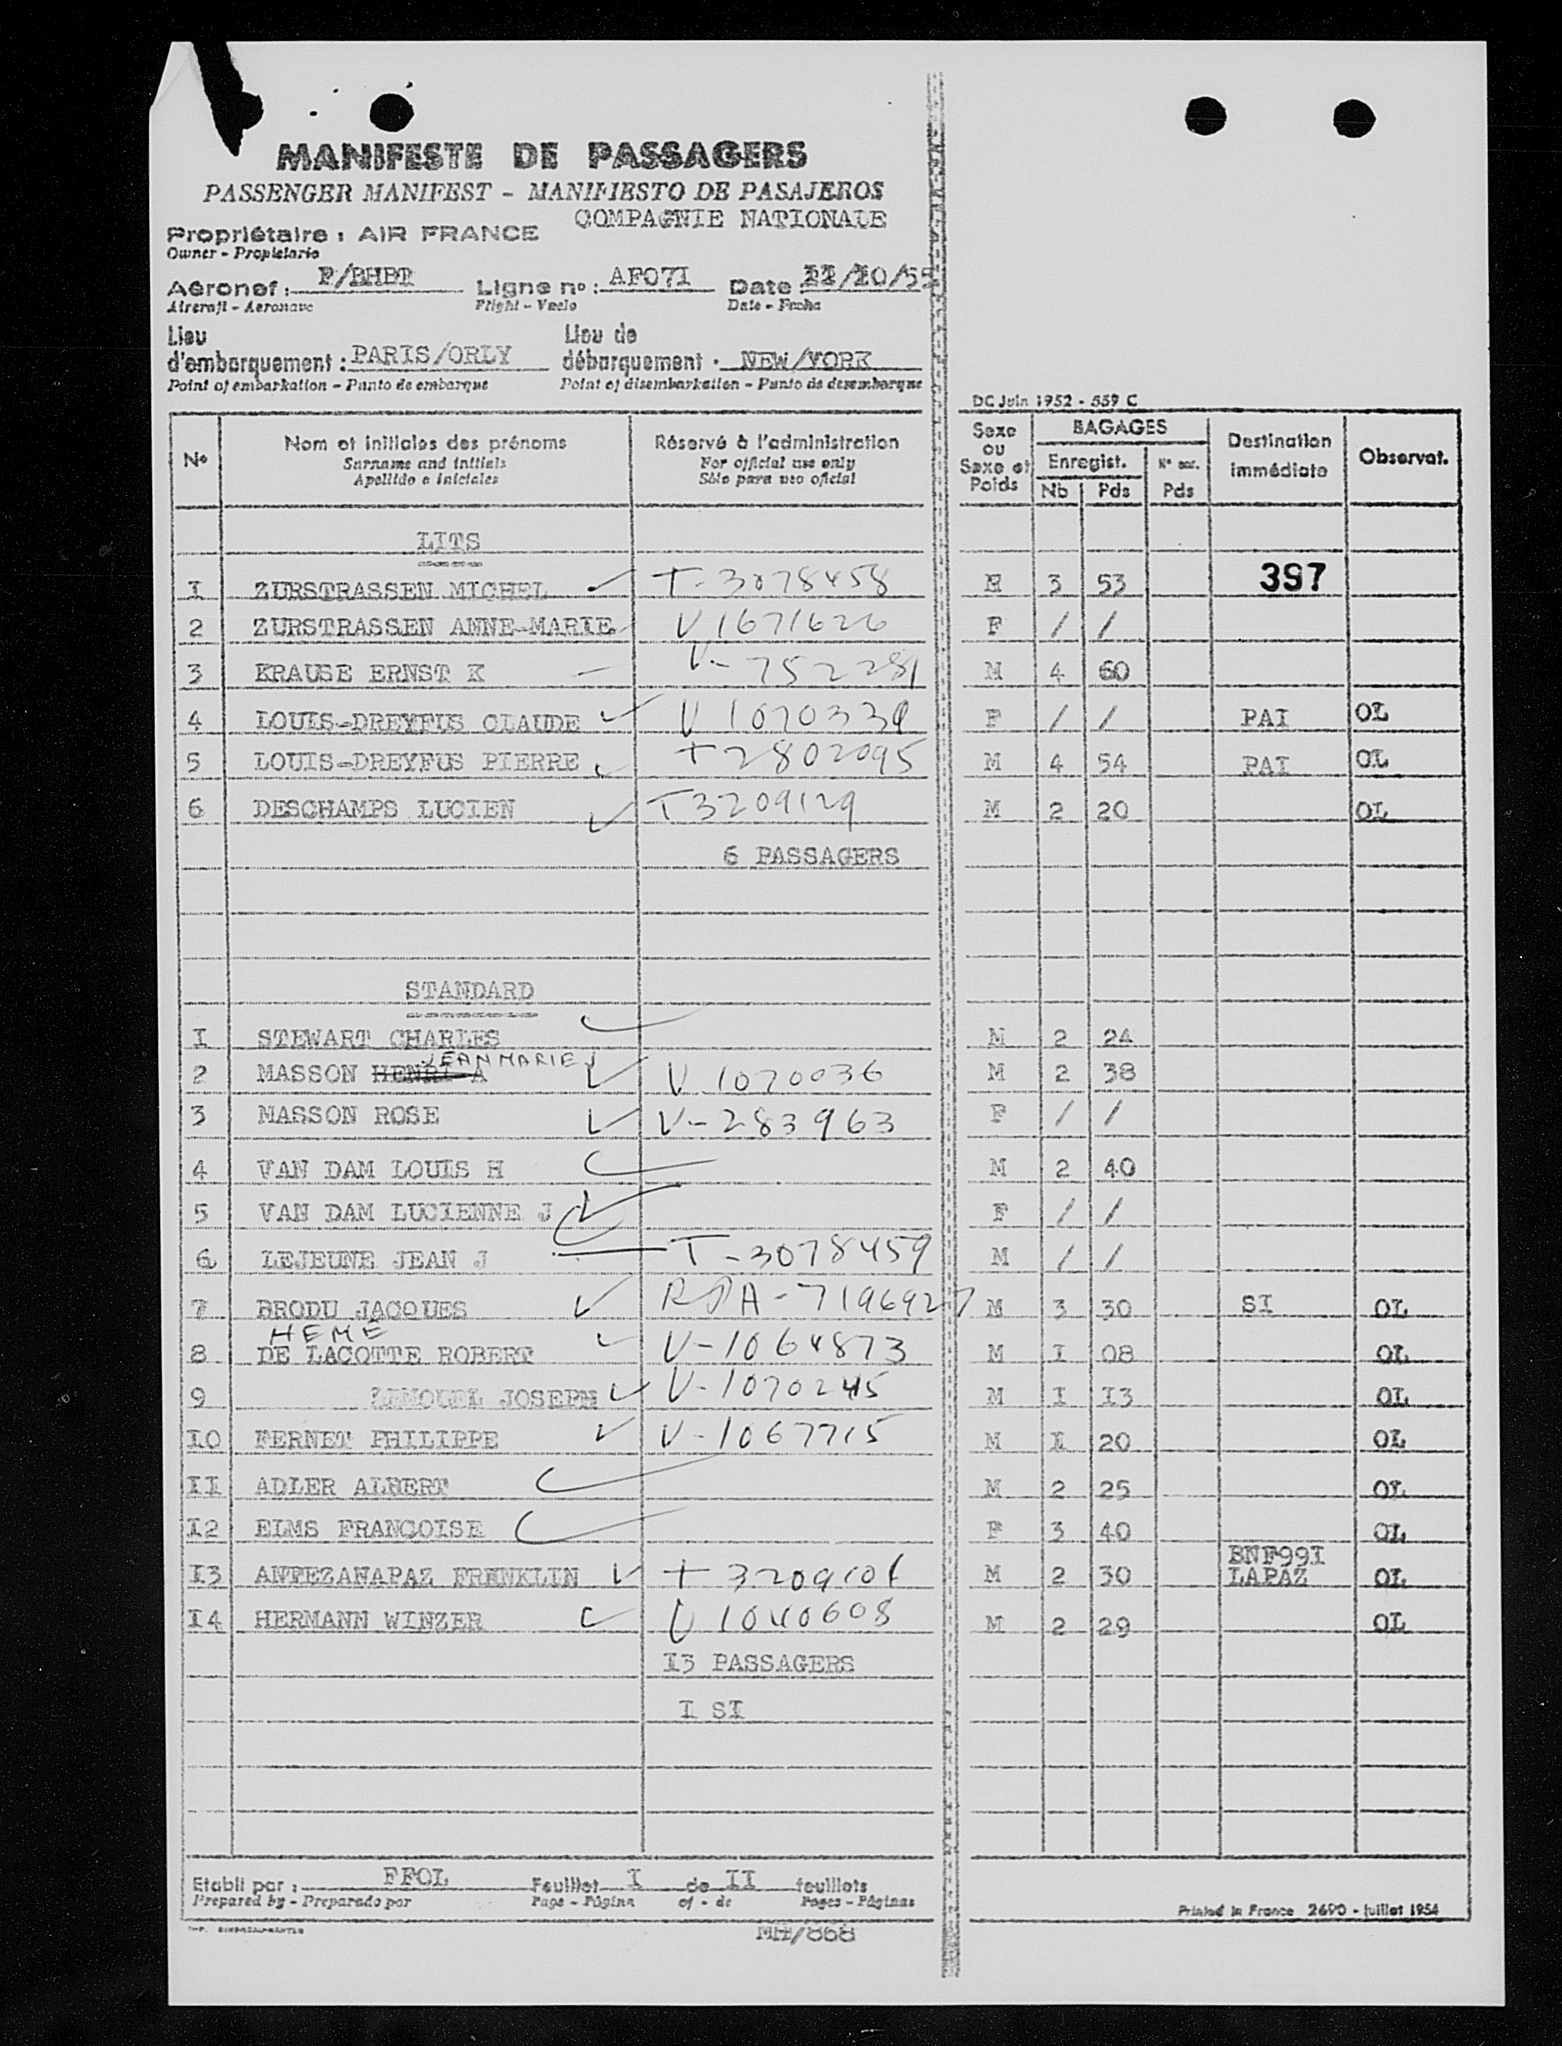 MANIFESTE DE PASSAGERS
PASSENGER MANIFEST - MANIFIESTO DE PASAJEROS
COMPAGNIE NATIONALE
Propriétaire : AIR FRANCE
Owner - Propietario
Aéronef : F/BHBT Ligne no : AF071 Date : 11/10/55
Aircraft - Aeronave Flight - Vuelo Date - Fecha
Lieu d'embarquement : PARIS/ORLY Lieu de débarquement : NEW/YORK
Point of embarkation - Punto de embarque Point of disembarkation - Punto de desembarque
DC Juin 1952 - 559 C
No Nom et initiales des prénoms Réservé à l'administration Sexe ou Sexe et Poids BAGAGES Destination immédiate Observat.
Surname and initials For official use only Enregist.
Apellido e iniciales Sólo para uso oficial Nb Pds Pds
LITS
I ZURSTRASSEN MICHEL T-3078458 3 53 397
2 ZURSTRASSEN ANNE-MARIE V1671626 F / /
3 KRAUSE ERNST K V-752281 M 4 60
4 LOUIS-DREYFUS CLAUDE V1070339 F / / PAI OL
5 LOUIS-DREYFUS PIERRE T2802095 M 4 54 PAI OL
6 DESCHAMPS LUCIEN T3209129 M 2 20 OL
6 PASSAGERS
STANDARD
I STEWART CHARLES M 2 24
JEAN MARIE J
2 MASSON HENRI A V-1070036 M 2 38
3 MASSON ROSE V-283963 F / /
4 VAN DAM LOUIS H M 2 40
5 VAN DAM LUCIENNE J F / /
6 LEJEUNE JEAN J T-3078459 M / /
7 BRODU JACQUES A-7196927 M 3 30 SI OL
HEME
8 DE LACOTTE ROBERT V-1064873 M I 08 OL
9 JOSEPH V-1070245 M I I3 OL
I0 FERNET PHILIPPE V-1067715 M I 20 OL
II ADLER ALBERT M 2 25 OL
I2 ELMS FRANCOISE F 3 40 OL
BNF99I
I3 ANTEZANAPAZ FRENKLIN T 3209101 M 2 30 LAPAZ OL
I4 HERMANN WINZER V1040608 M 2 29 OL
I3 PASSAGERS
I SI
Etabli par : FFOL Feuillet I de II feuillets
Prepared by - Preparado por Page - Página of - de Pages - Páginas
Printed in France 2690 - juillet 1954
MH/868